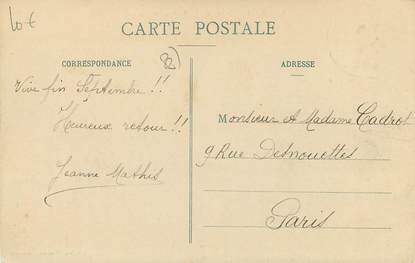 10 €
CARTE POSTALE
82
CORRESPONDANCE
ADRESSE
Vive fin Septembre !!
Heureux retour !!
Jeanne Mathis
Monsieur et Madame Cadrot
9 Rue Desnouettes
Paris